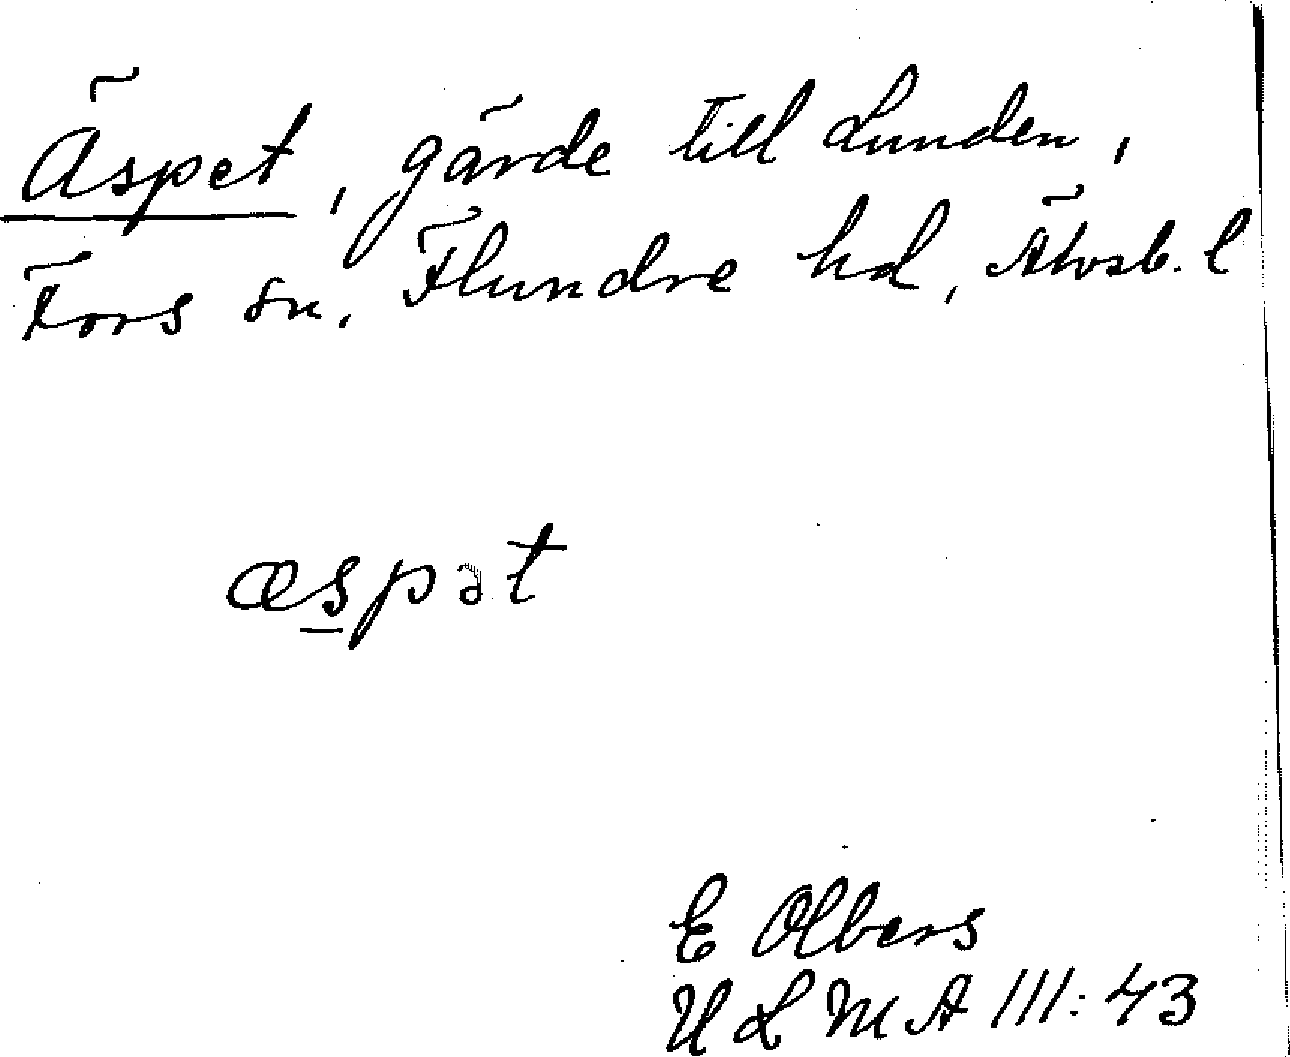 Äspet, gärde till Lunden,
Fors sn, Flundre hd, Älvsb. l
æspət
E Olbers
ULMA III: 43